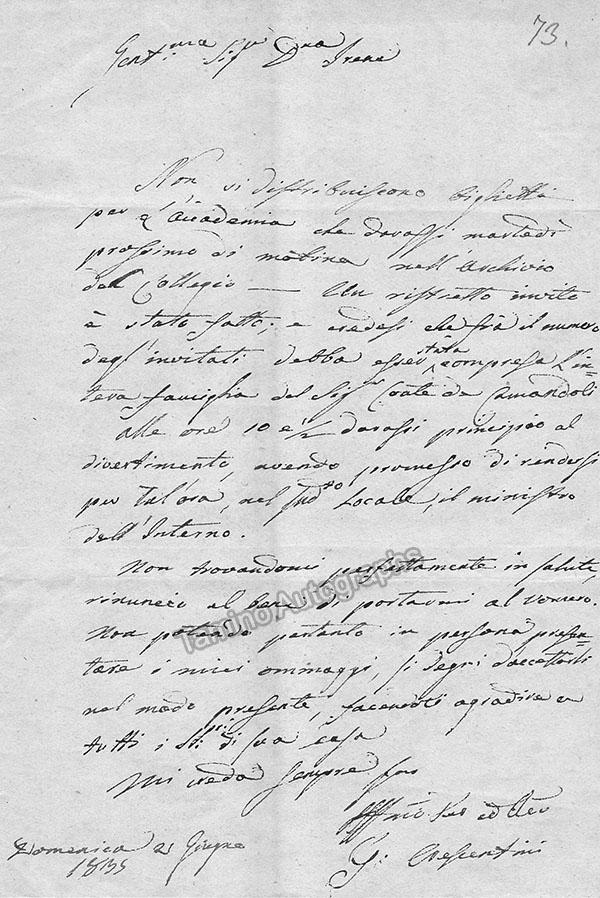 73.
Gent.ma Sig.ra D.na Irene
Non si distribuiscono biglietti
per l'Accademia che darassi martedì
prossimo di matina nell'Archivio
del Collegio — Un ristretto invito
è stato fatto: e credesi che frà il numero
degl'invitati debba esser stata compresa l'in=
tera famiglia del Sig.r Conte de Camandoli
alle ore 10 e ½ darassi principio al
divertimento, avendo promesso di rendersi
per tal'ora, nel sud.to Locale, il ministro
dell'Interno.
Non trovandomi perfettamente in salute,
rinuncio al bene di portarmi al vomero.
Non potendo pertanto in persona presen=
tare i miei ommaggi, si degni d'accettarli
nel modo presente, facendoli agradire a
tutti i Sig.ri di sua casa
Mi creda sempre suo
G. Crescentini
Domenica 21 Giugno
1835
Tamino Autographs